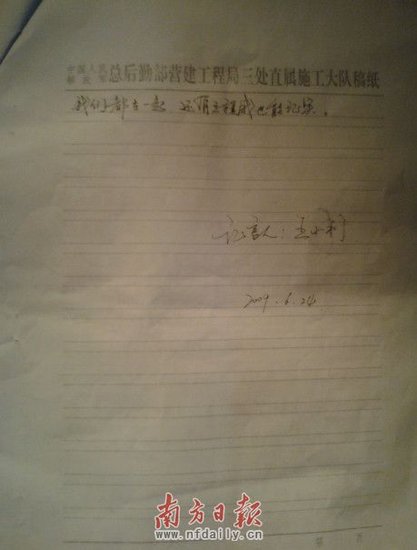 中国人民解放军总后勤部营建工程局三处直属施工大队稿纸
我们都在一起,还有立程成也能证实。
证言人:孟小利
2009.6.24
南方日报
www.nfdaily.cn
第 页